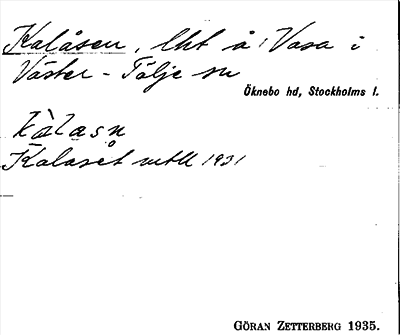 Kalåsen, lht å Vasa i
Väster-Tälje sn
Öknebo hd, Stockholms l.
kàlasn
Kalaset mtll 1931
GÖRAN ZETTERBERG 1935.